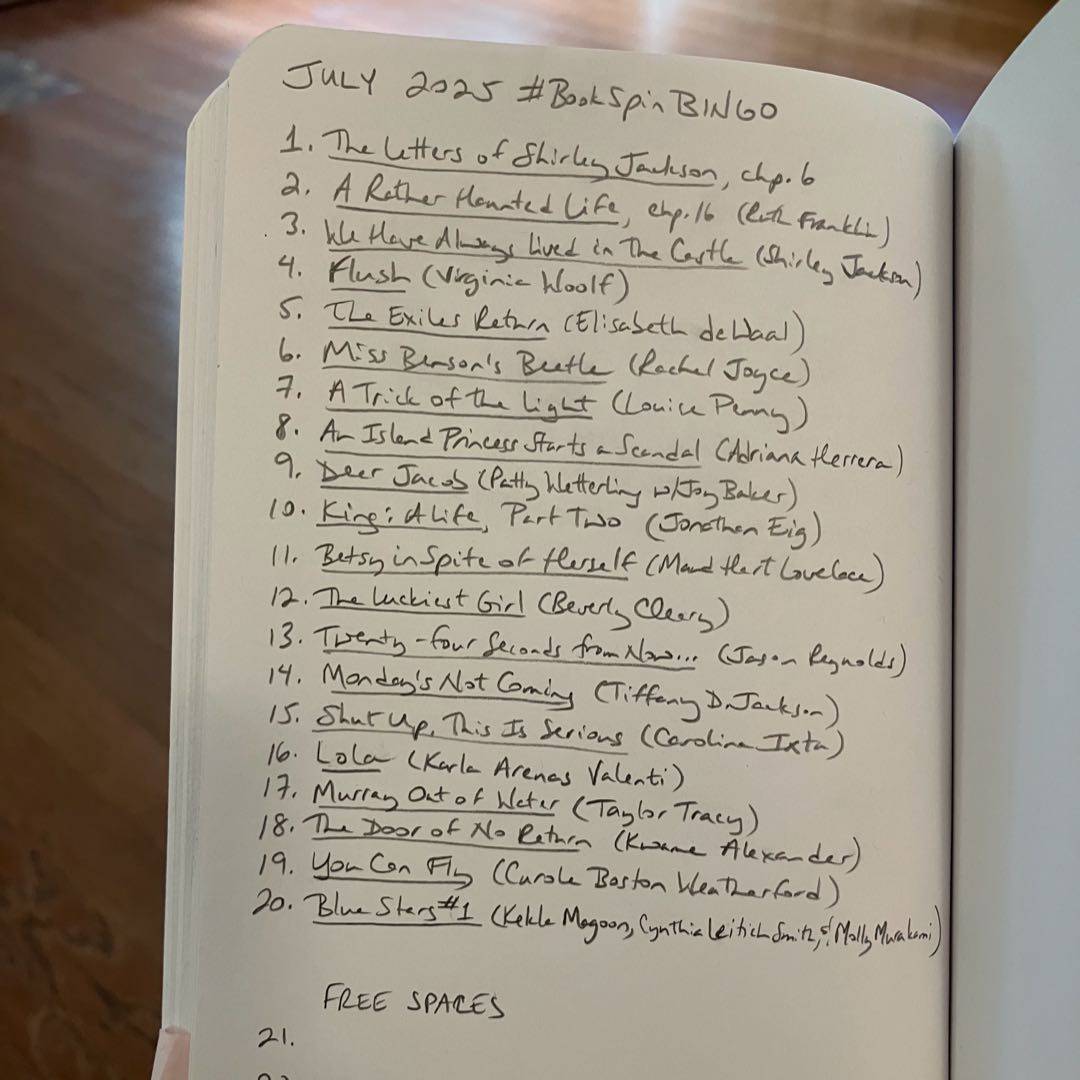 JULY 2025 #BookSpinBINGO
1. The Letters of Shirley Jackson, chp. 6
2. A Rather Haunted Life, chp. 16 (Ruth Franklin)
3. We Have Always Lived in The Castle (Shirley Jackson)
4. Flush (Virginia Woolf)
5. The Exiles Return (Elisabeth de Waal)
6. Miss Benson's Beetle (Rachel Joyce)
7. A Trick of the Light (Louise Penny)
8. An Island Princess Starts a Scandal (Adriana Herrera)
9. Dear Jacob (Patty Wetterling w/Joy Baker)
10. King: A Life, Part Two (Jonathan Eig)
11. Betsy in Spite of Herself (Maud Hart Lovelace)
12. The Luckiest Girl (Beverly Cleary)
13. Twenty-four Seconds from Now... (Jason Reynolds)
14. Monday's Not Coming (Tiffany D. Jackson)
15. Shut Up, This Is Serious (Carolina Ixta)
16. Lola (Karla Arenas Valenti)
17. Murray Out of Water (Taylor Tracy)
18. The Door of No Return (Kwame Alexander)
19. You Can Fly (Carole Boston Weatherford)
20. Blue Stars #1 (Kekla Magoon, Cynthia Leitich Smith, & Molly Murakami)
FREE SPACES
21.